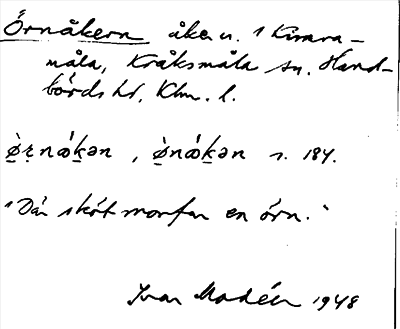 "Örnåkern åker n. 1 Kimra-
måla, Kråksmåla sn. Hand-
börds hd, Klm. l.
ö̀ṛnǻḵən, ö̀nǻḵən s. 184.
"Där sköt morfar en örn."
Ivar Modéer 1948